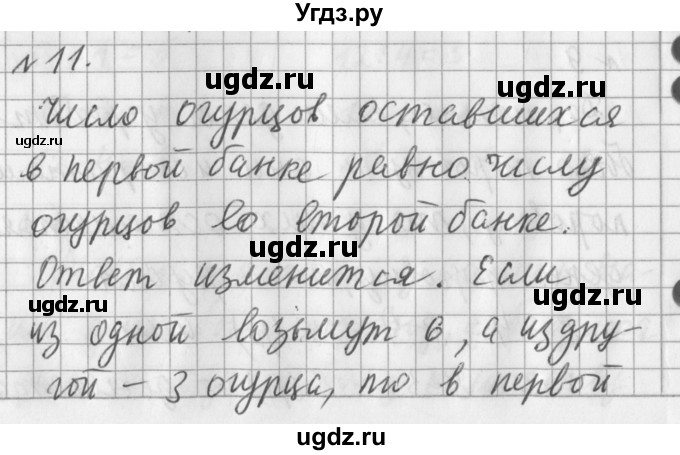 Угдз.ру
№11.
ugdz.ru
ugdz.ru
Число огурцов оставшихся
ugdz.ru
в первой банке равно числу
огурцов во второй банке.
ugdz.ru
ugdz.ru
Ответ изменится. Если
ugdz.ru
ugdz.ru
из одной возьмут 6, а из дру-
гой - 3 огурца, то в первой
ugdz.ru